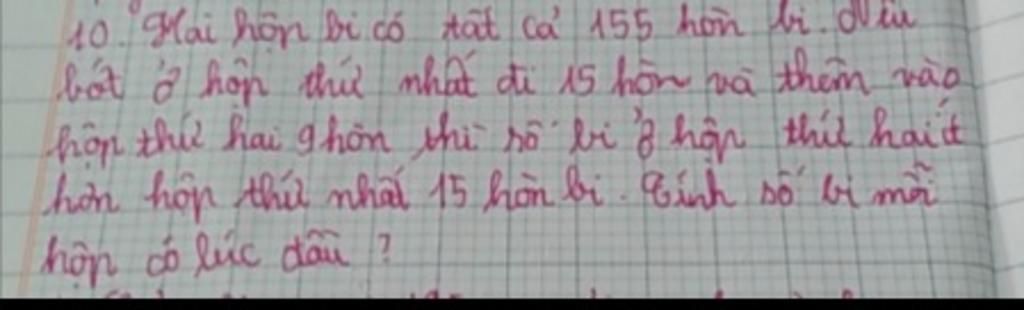 10. Hai hộp bi có tất cả 155 hòn bi. Nếu
bớt ở hộp thứ nhất đi 15 hòn và thêm vào
hộp thứ hai 9 hòn thì số bi ở hộp thứ hai ít
hơn hộp thứ nhất 15 hòn bi. Tính số bi mỗi
hộp có lúc đầu ?